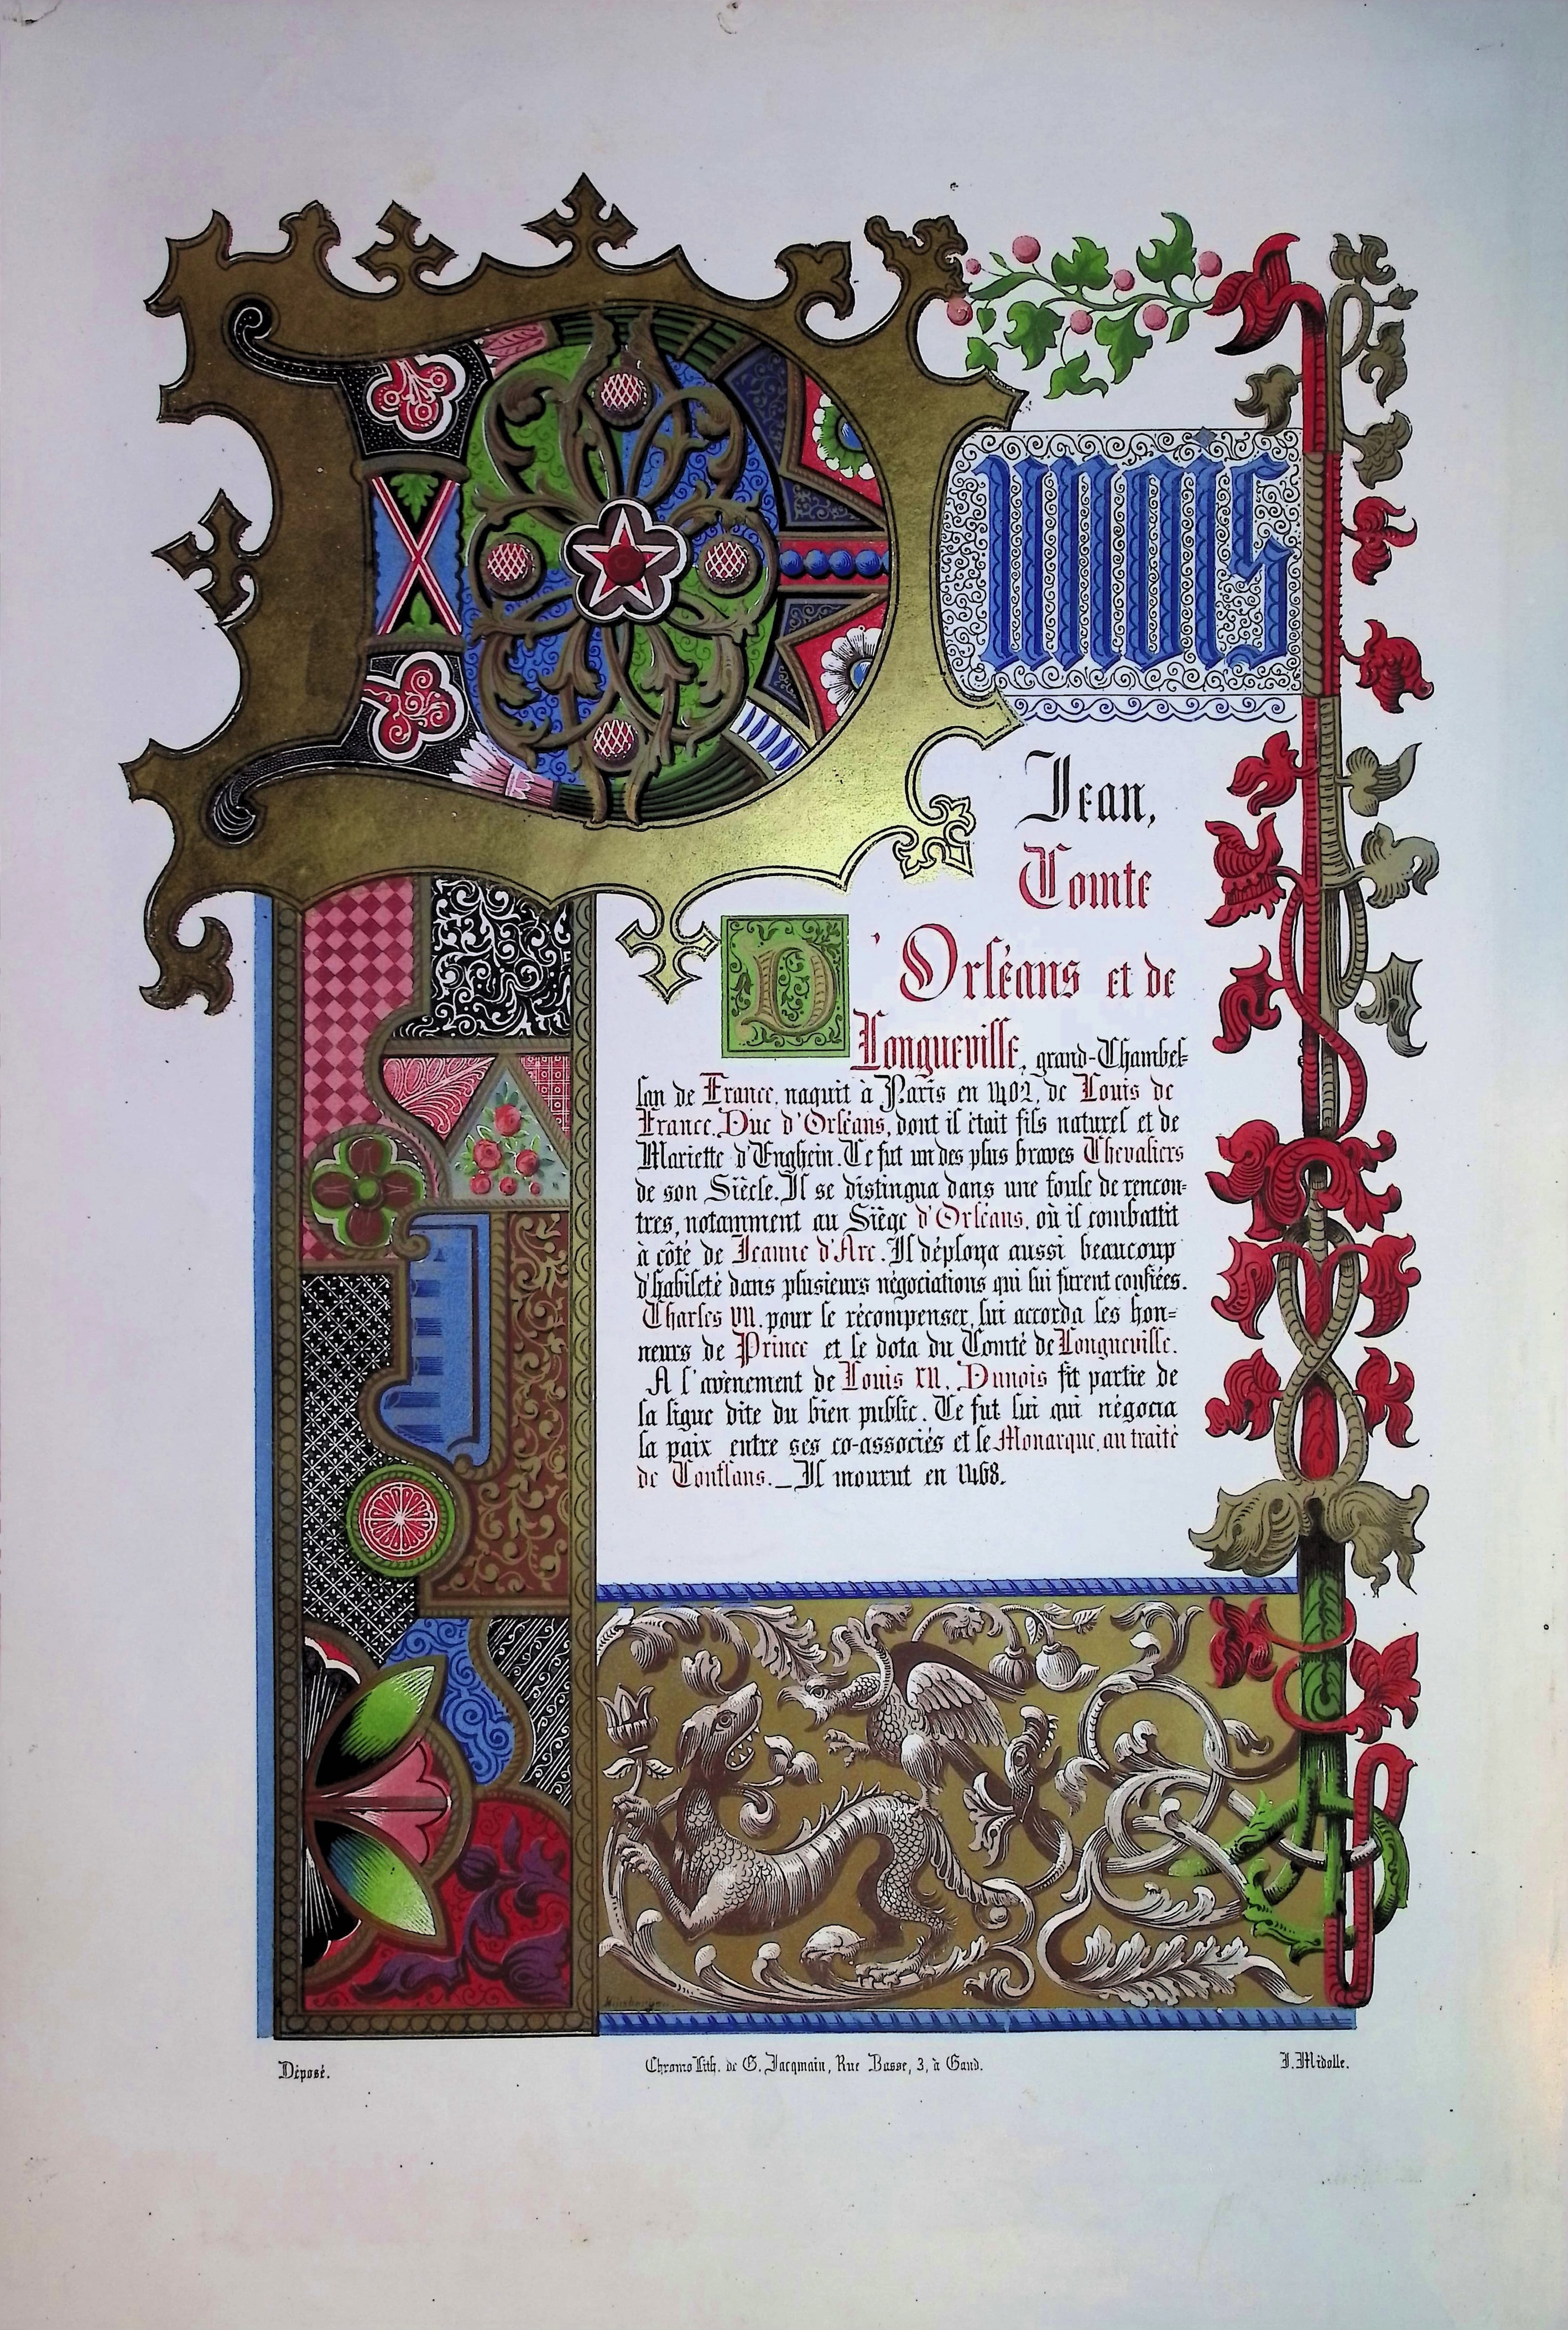 Dunois
Jean,
Comte
D'Orléans et de
Longueville, grand-Chambel-
lan de France, naquit à Paris en 1402, de Louis de
France, Duc d'Orléans, dont il était fils naturel et de
Mariette d'Enghein. Ce fut un des plus braves Chevaliers
de son Siècle. Il se distingua dans une foule de rencon=
tres, notamment au Siège d'Orléans, où il combattit
à côté de Jeanne d'Arc. Il déploya aussi beaucoup
d'habileté dans plusieurs négociations qui lui furent confiées.
Charles VII, pour le récompenser, lui accorda les hon=
neurs de Prince et le dota du Comté de Longueville.
A l'avènement de Louis XII, Dunois fit partie de
la ligue dite du bien public. Ce fut lui qui négocia
la paix entre ses co-associés et le Monarque, au traité
de Conflans. _ Il mourut en 1468.
Déposé.
Chromo Lith. de G. Jacqmain, Rue Basse, 3, à Gand.
J. Midolle.